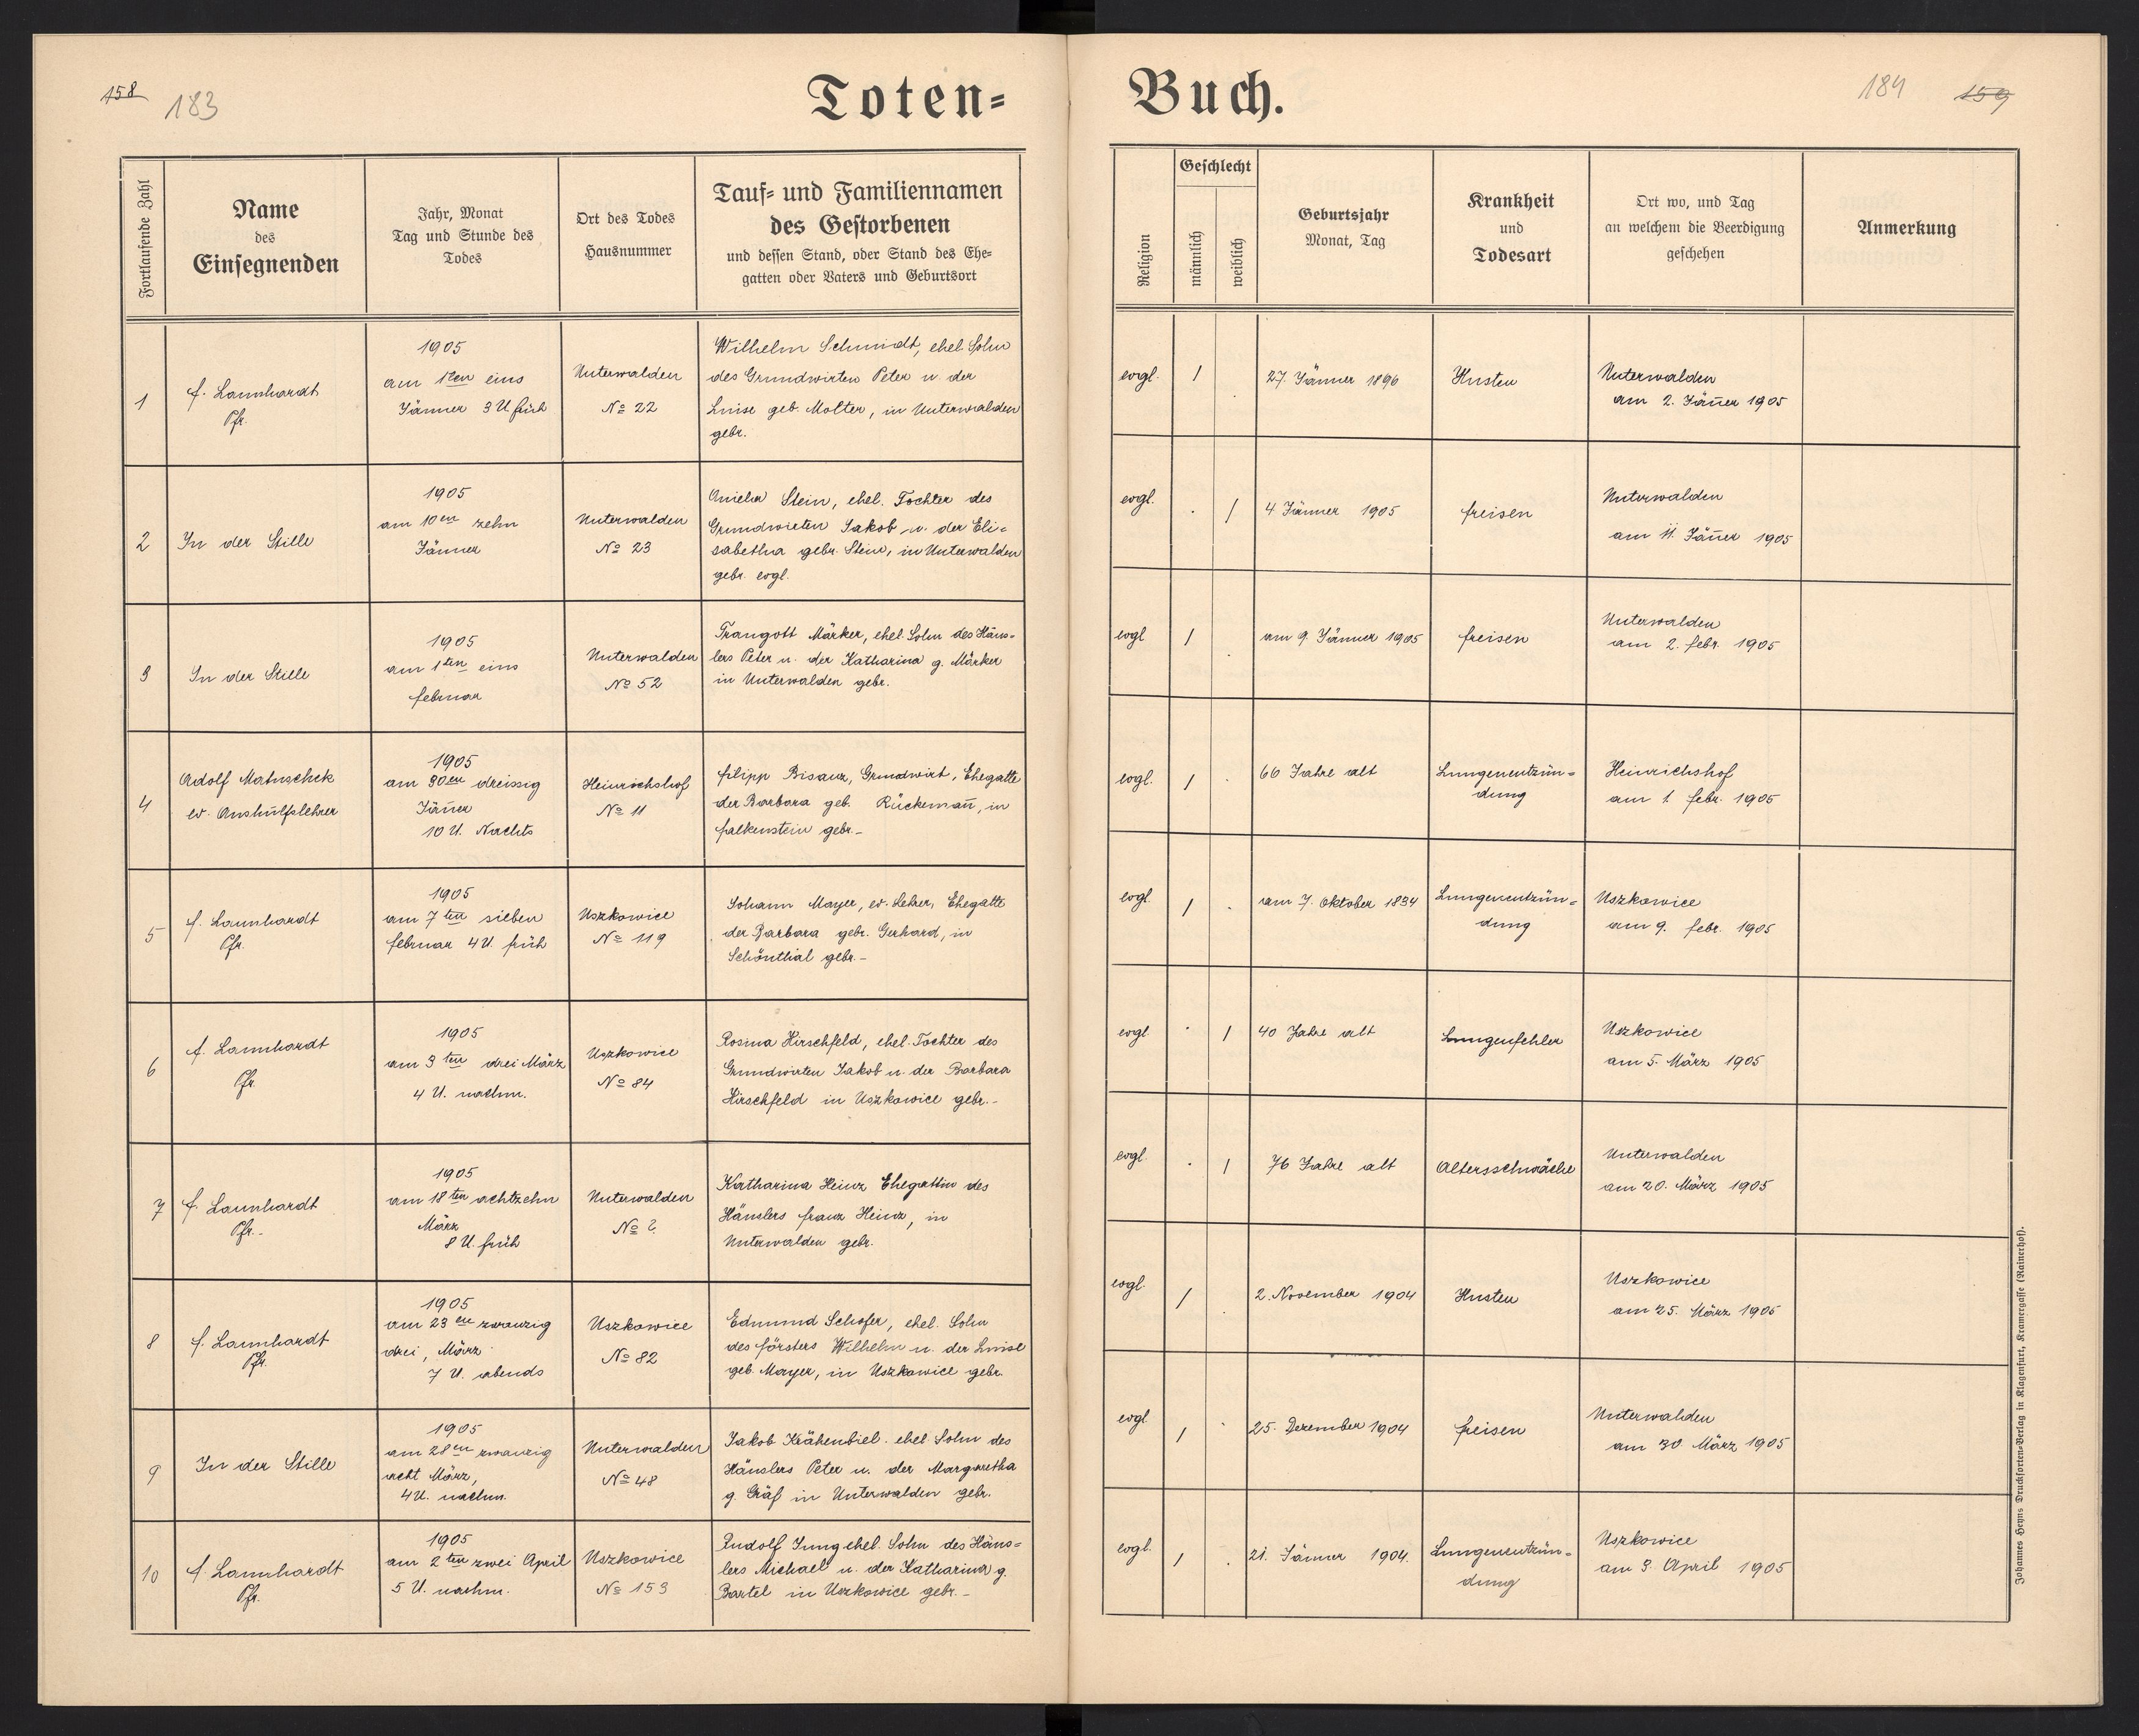 158 183
Toten=
Fortlaufende Zahl
Name
des
Einsegnenden
Jahr, Monat
Tag und Stunde des
Todes
Ort des Todes
Hausnummer
Tauf= und Familiennamen
des Gestorbenen
und dessen Stand, oder Stand des Ehe=
gatten oder Vaters und Geburtsort
1
f. Launhardt
Pfr.
1905
am 1ten eins
Jänner 3 U früh
Unterwalden
No 22
Wilhelm Schmidt, ehel. Sohn
des Grundwirten Peter u. der
Luise geb. Molter, in Unterwalden
gebr.
2
In der Stille
1905
am 10en zehn
Jänner
Unterwalden
No 23
Stein, ehel. Tochter des
Grundwirten Jakob u. der Eli=
sabetha gebr. Stein, in Unterwalden
gebr. evgl.
3
In der Stille
1905
am 1ten eins
februar
Unterwalden
No 52
Traugott Märker, ehel. Sohn des Häus=
lers Peter u. der Katharina g. Märker
in Unterwalden gebr.
4
Adolf Matuschek
ev. Aushülfslehrer
1905
am 30en dreissig
Jäner
10 U. Nachts
Heinrichshof
No 11
filipp Bisanz, Grundwirt, Ehegatte
der Barbara geb. Rückeman̅, in
falkenstein gebr.-
5
f. Launhardt
Pfr.
1905
am 7ten sieben
februar 4 U. früh
Uszkowice
No 119
Johann Mayer, ev. Lehrer, Ehegatte
der Barbara gebr. Gerhard, in
Schönthal gebr.-
6
f. Launhardt
Pfr.
1905
am 3ten drei März
4 U. nachm.
Uszkowice
No 84
Rosina Hirschfeld, ehel. Tochter des
Grundwirten Jakob u. der Barbara
Hirschfeld in Uszkowice gebr.-
7
f. Launhardt
Pfr.-
1905
am 18ten achtzehn
März
8 U. früh
Unterwalden
No ?
Katharina Heinz Ehegattin des
Häuslers franz Heinz, in
Unterwalden gebr.
8
f. Launhardt
Pfr.
1905
am 23en zwanzig
drei, März
7 U. abends
Uszkowice
No 82
Edmund Schofer, ehel. Sohn
des försters Wilhelm u. der Luise
geb. Mayer, in Uszkowice gebr.
9
In der Stille
1905
am 28en zwanzig
acht März,
4 U. nachm.
Unterwalden
No 48
Jakob Krähenbiel. ehel Sohn des
Häuslers Peter u. der Margaretha
g. Gräf in Unterwalden gebr.
10
f. Launhardt
Pfr.
1905
am 2ten zwei April
5 U. nachm.
Uszkowice
No 153
Rudolf Jung ehel. Sohn des Häus=
lers Michael u. der Katharina g.
Bartel in Uszkowice gebr.-
Buch.
184 159
Religion
Geschlecht
männlich
weiblich
Geburtsjahr
Monat, Tag
Krankheit
und
Todesart
Ort wo, und Tag
an welchem die Beerdigung
geschehen
Anmerkung
evgl. 1 .
27. Jänner 1896
Husten
Unterwalden
am 2. Jän̅er 1905
evgl. . 1
4 Jänner 1905
freisen
Unterwalden
am 11. Jän̅er 1905
evgl 1 .
am 9. Jänner 1905
freisen
Unterwalden
am 2. febr. 1905
evgl. 1 .
66 Jahre alt
Lungenentzün=
dung
Heinrichshof
am 1. febr. 1905
evgl. 1 .
am 7. Oktober 1834
Lungenentzün=
dung
Uszkowice
am 9. febr. 1905
evgl . 1
40 Jahre alt
Lungenfehler
Uszkowice
am 5. März 1905
evgl. . 1
76 Jahre alt
Altersschwäche
Unterwalden
am 20. März 1905
evgl. 1 .
2. November 1904
Husten
Uszkowice
am 25. März 1905
evgl 1 .
25. Dezember 1904
freisen
Unterwalden
am 30 März 1905
evgl. 1 .
21. Jänner 1904.
Lungenentzün=
dung
Uszkowice
am 3. April 1905
Johannes Heyns Drucksorten-Verlag in Klagenfurt, Kramergasse (Rainerhof).